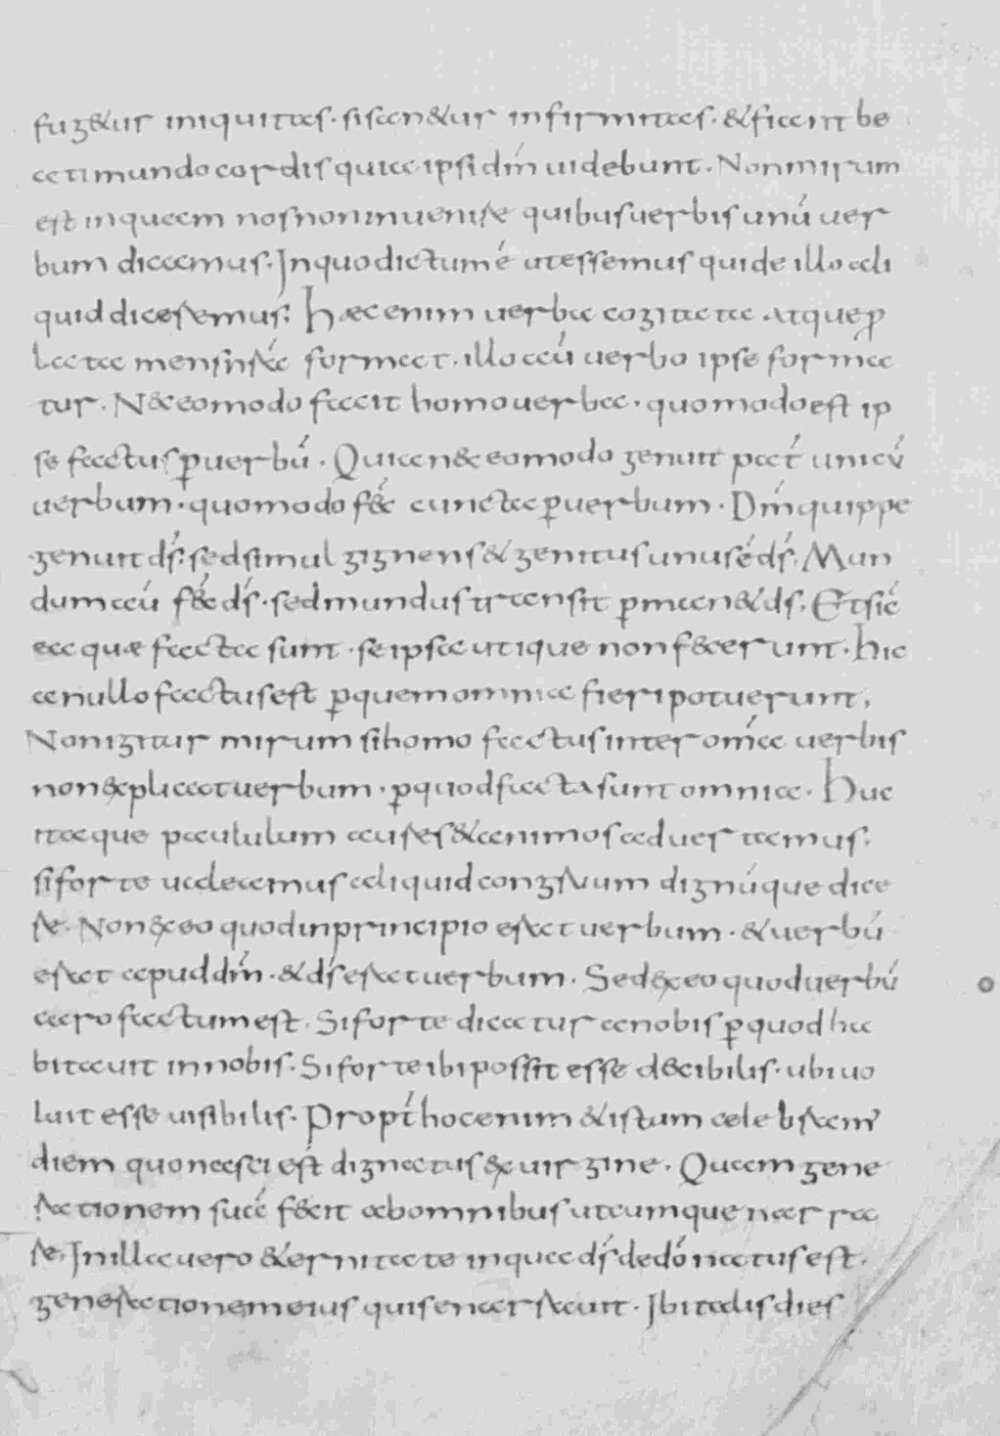 fug&ur iniquitas. sisan&ur infirmitas. &fiant be
ati mundo cordis quia ipsi dm̄ uidebunt. Non mirum
est inquam nos non inuenire quibus uerbis unū uer
bum dicamus. In quo dictum ē ut essemus qui de illo ali
quid diceremus. Haec enim uerba cogitata atque p
lata mens nr̄a format. illo aū uerbo ipse forma
tur. Nec eo modo facit homo uerba. quomodo est ip
se factus p uerbū. Quia nec eo modo genuit pat̄ unicū
uerbum. quomodo fec̄ cuncta p uerbum. Dm̄ quippe
genuit ds̄. sed simul gignens & genitus unus ē ds̄. Mun
dum aū fec̄ ds̄. sed mundus transit pman& ds̄. Et sic̄
ea quæ facta sunt. se ipsa utique non fecerunt. Sic
a nullo factus est p quem omnia fieri potuerunt,
Non igitur mirum si homo factus inter om̄a uerbis
non explicat uerbum. p quod facta sunt omnia. Huc
itaque paululum aures & animos aduertamus.
si forte ualeamus aliquid congruum dignūque dice
re. Non ex eo quod in principio erat uerbum. & uerbū
erat apud dm̄. & ds̄ erat uerbum. Sed ex eo quod uerbū
caro factum est. Si forte dicatur a nobis p quod ha
bitauit in nobis. Si forte ibi possit esse dicibilis. ubi uo
luit esse uisibilis. Propt̄ hoc enim & istum celebram̄
diem quo nasci est dignatus ex uirgine. Quam gene
rationem suā fecit ab omnibus utcumque narra
re. In illa uero &ernitate in qua ds̄ de dō natus est.
generationem eius quis enarrauit. Ibi talis dies